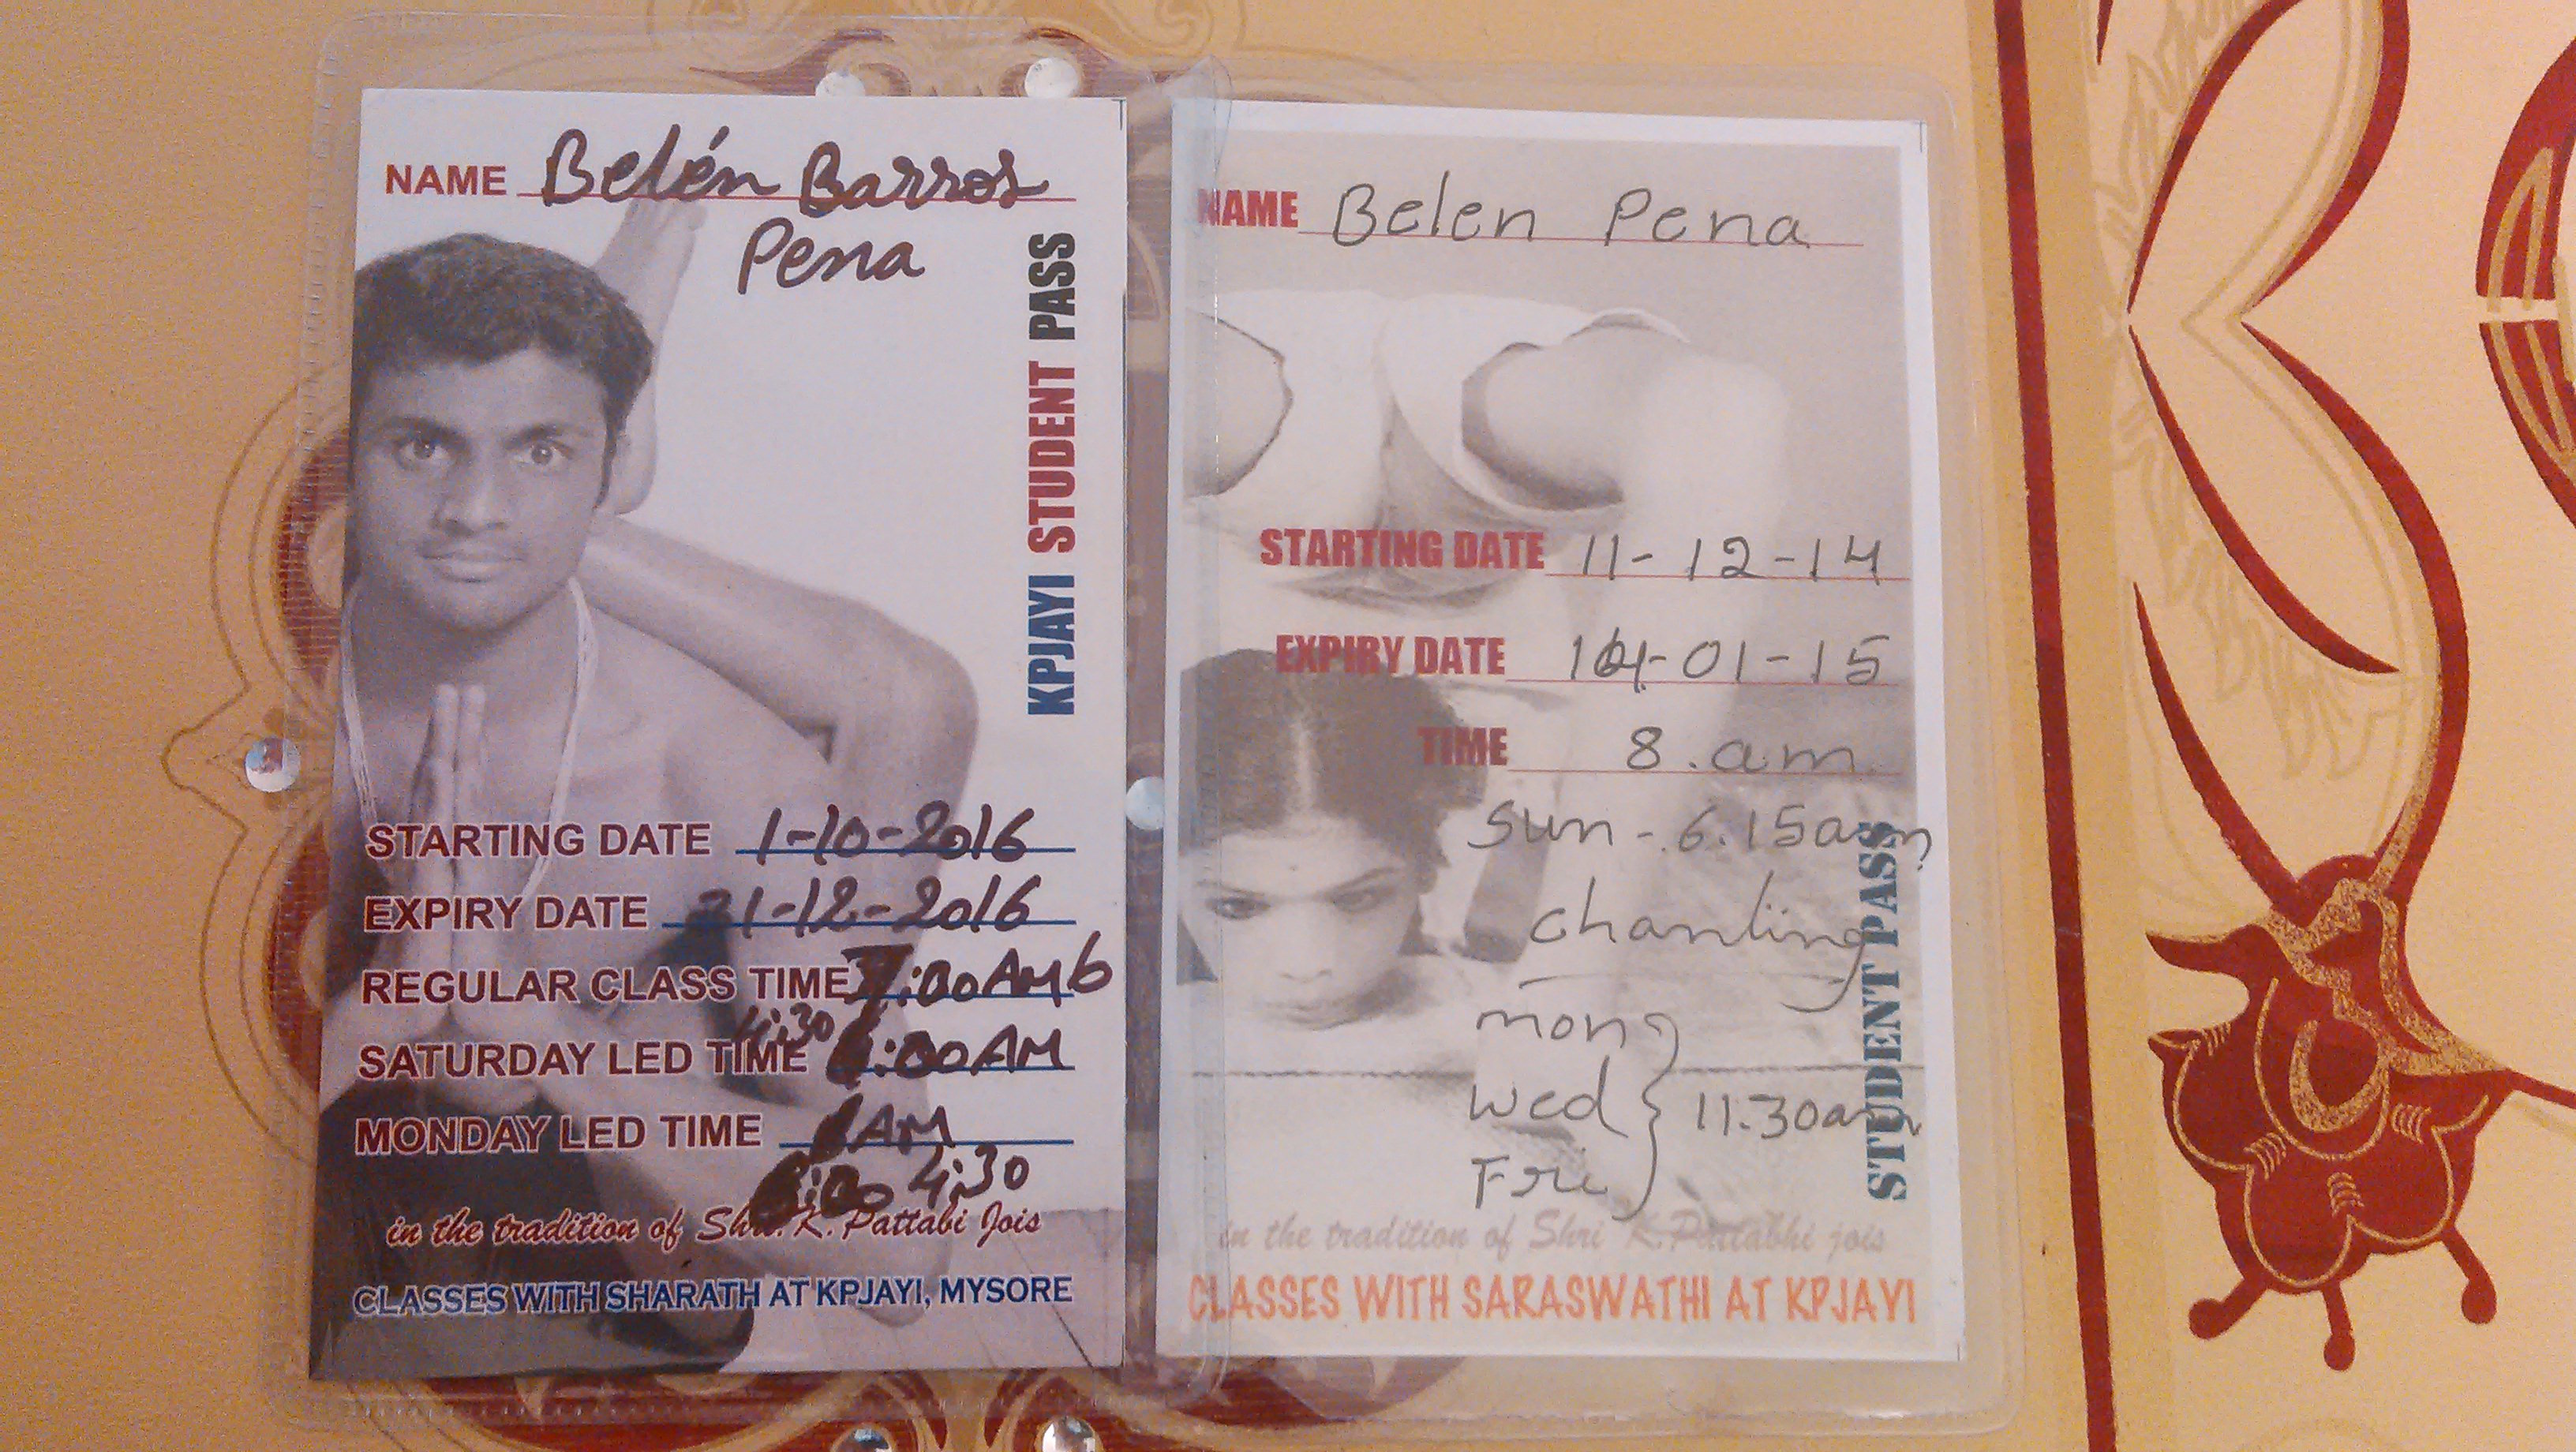 NAME Belén Barros
Pena
KPJAYI STUDENT PASS
STARTING DATE 1-10-2016
EXPIRY DATE 31-12-2016
REGULAR CLASS TIME :00 AM 6
4:30
SATURDAY LED TIME :00 AM
MONDAY LED TIME AM
4:30
in the tradition of Shri. K. Pattabi Jois
CLASSES WITH SHARATH AT KPJAYI, MYSORE
NAME Belen Pena
STARTING DATE 11-12-14
EXPIRY DATE -01-15
TIME 8.am
Sun - 6.15am
chanting
mon
wed } 11.30am
Fri
STUDENT PASS
in the tradition of Shri K.Pattabhi jois
CLASSES WITH SARASWATHI AT KPJAYI